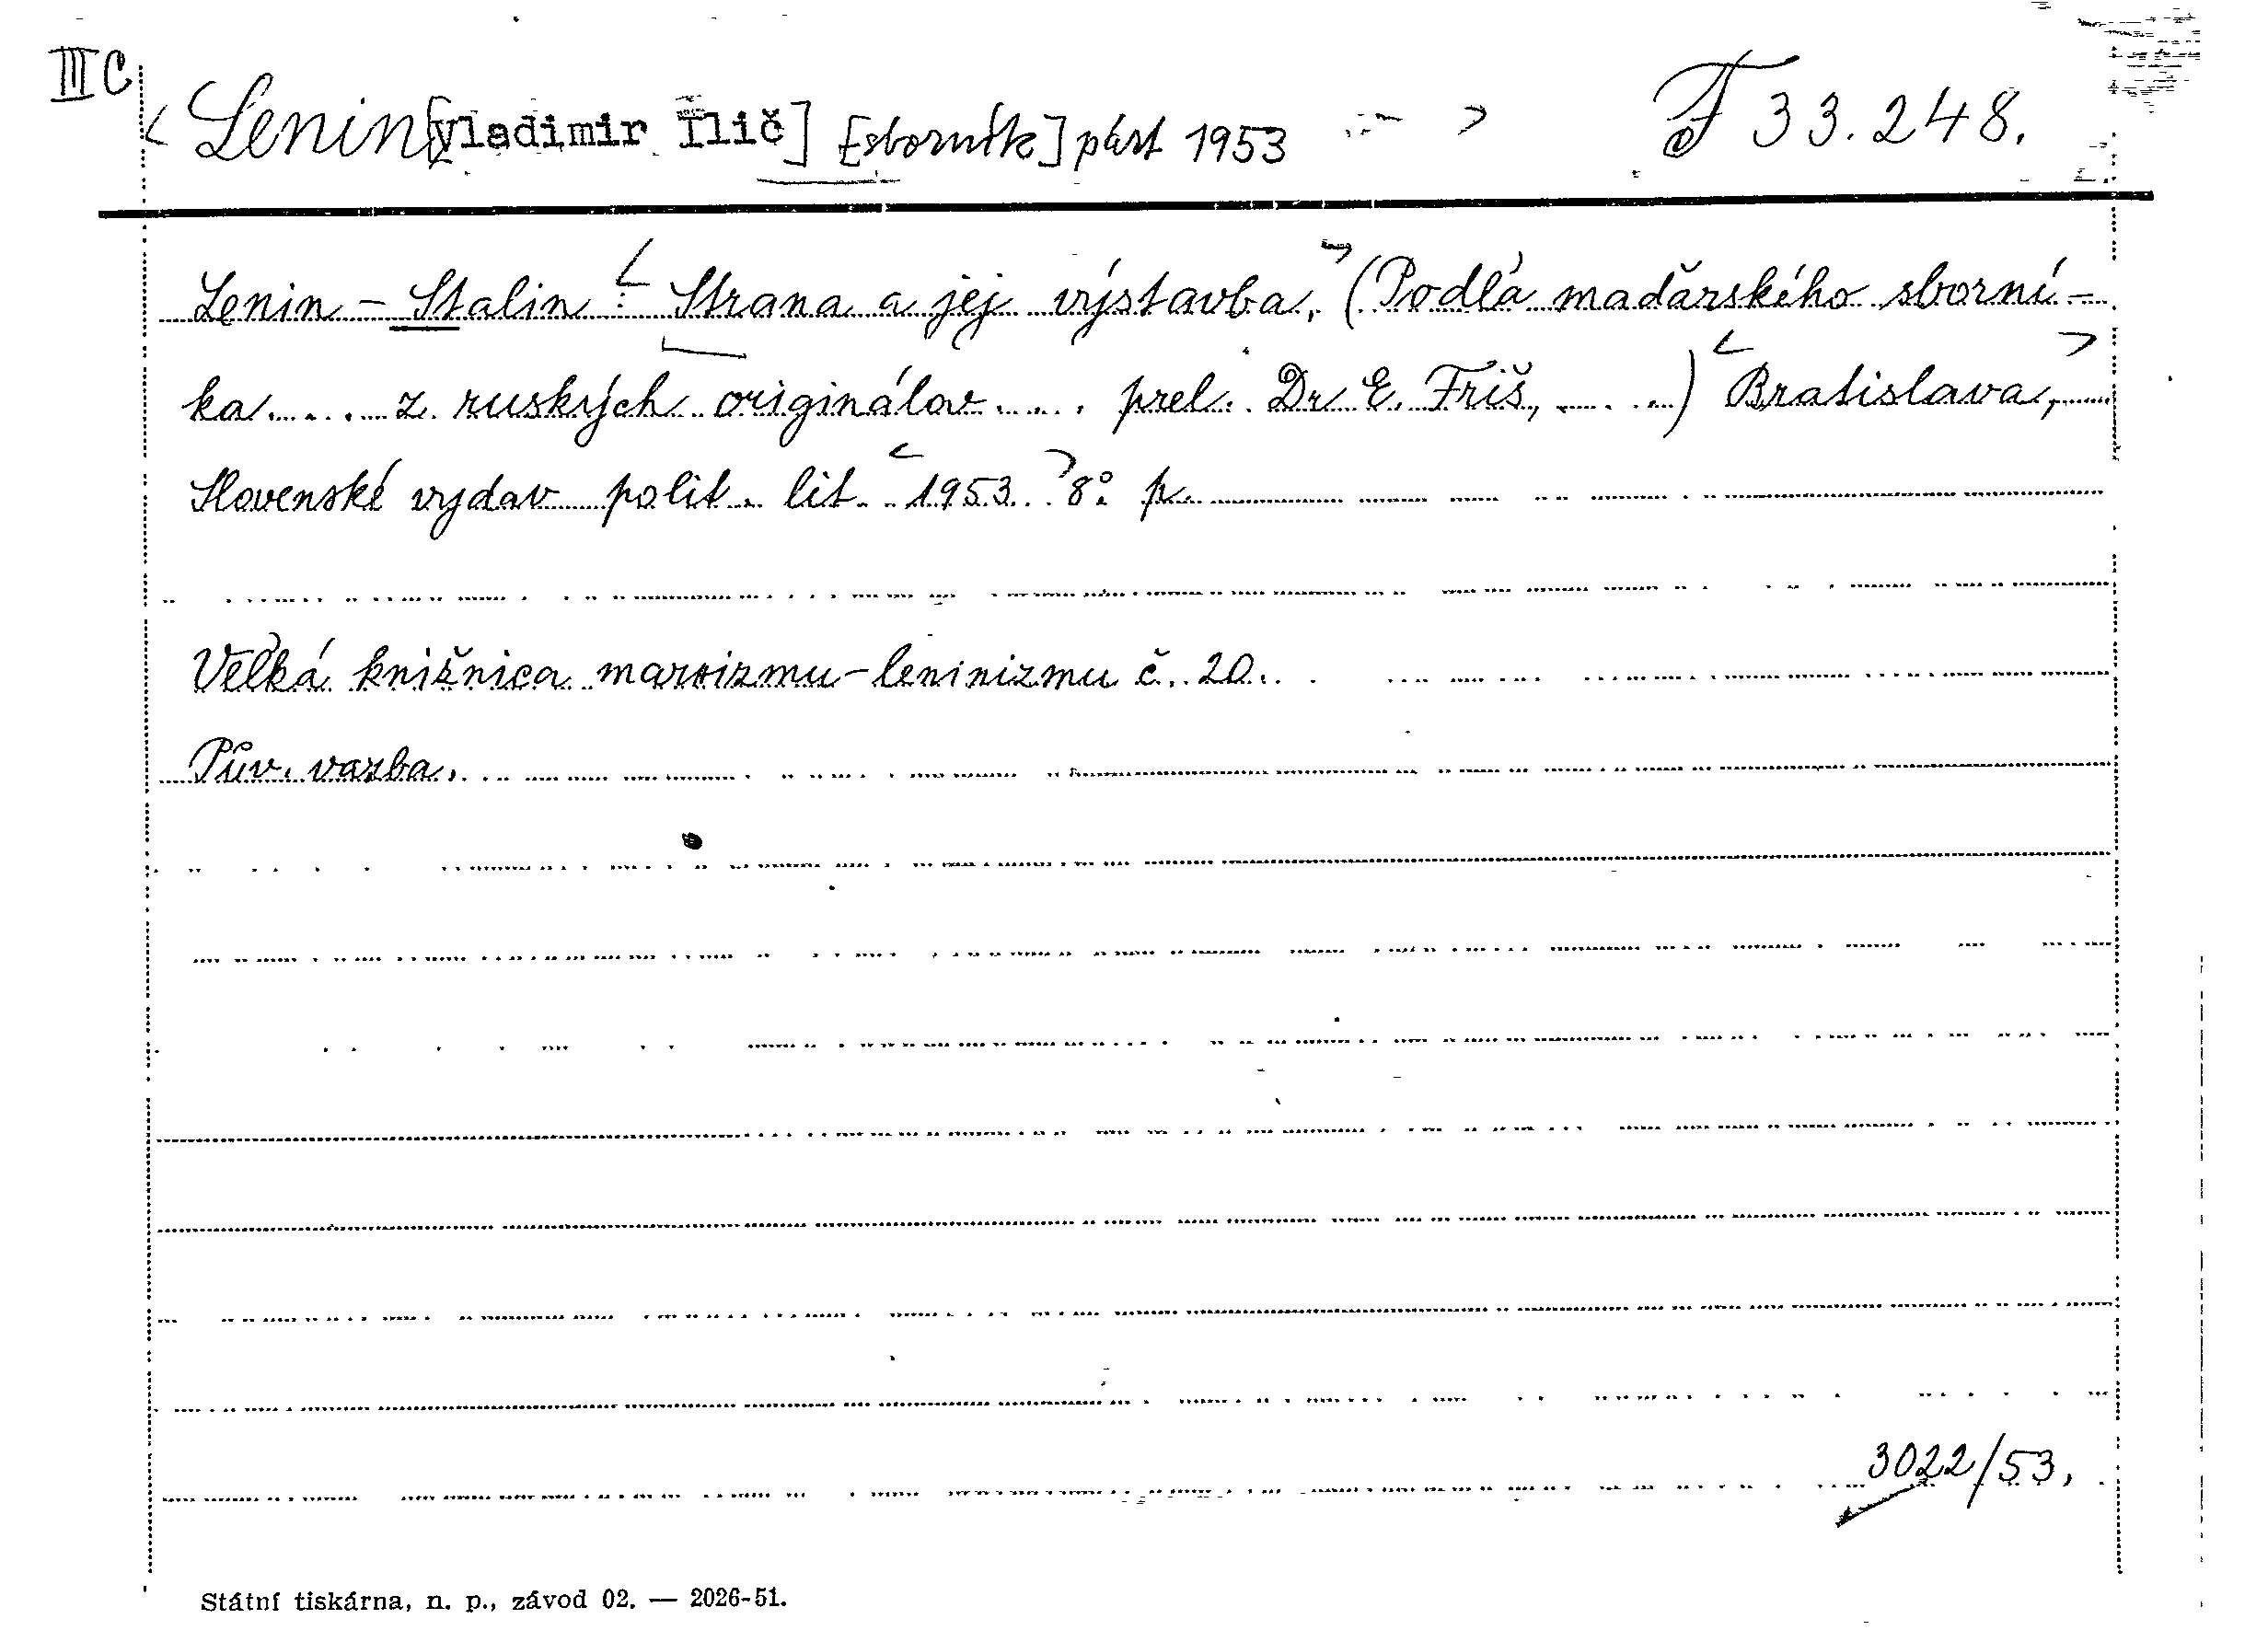 III C
< Lenin [Vladimir Ilič] [sborník] part 1953 > F 33.248.
Lenin - Stalin : < Strana a jej výstavba, > (Podľa maďarského sborní-
ka ..... z ruských originálov ..... prel. Dr E. Friš, .....) < Bratislava, >
Slovenské vydav polit. lit. < 1953. > 8° p.
Veľká knižnica marxizmu-leninizmu č. 20.
Pův. vazba.
3022/53.
Státní tiskárna, n. p., závod 02. — 2026-51.